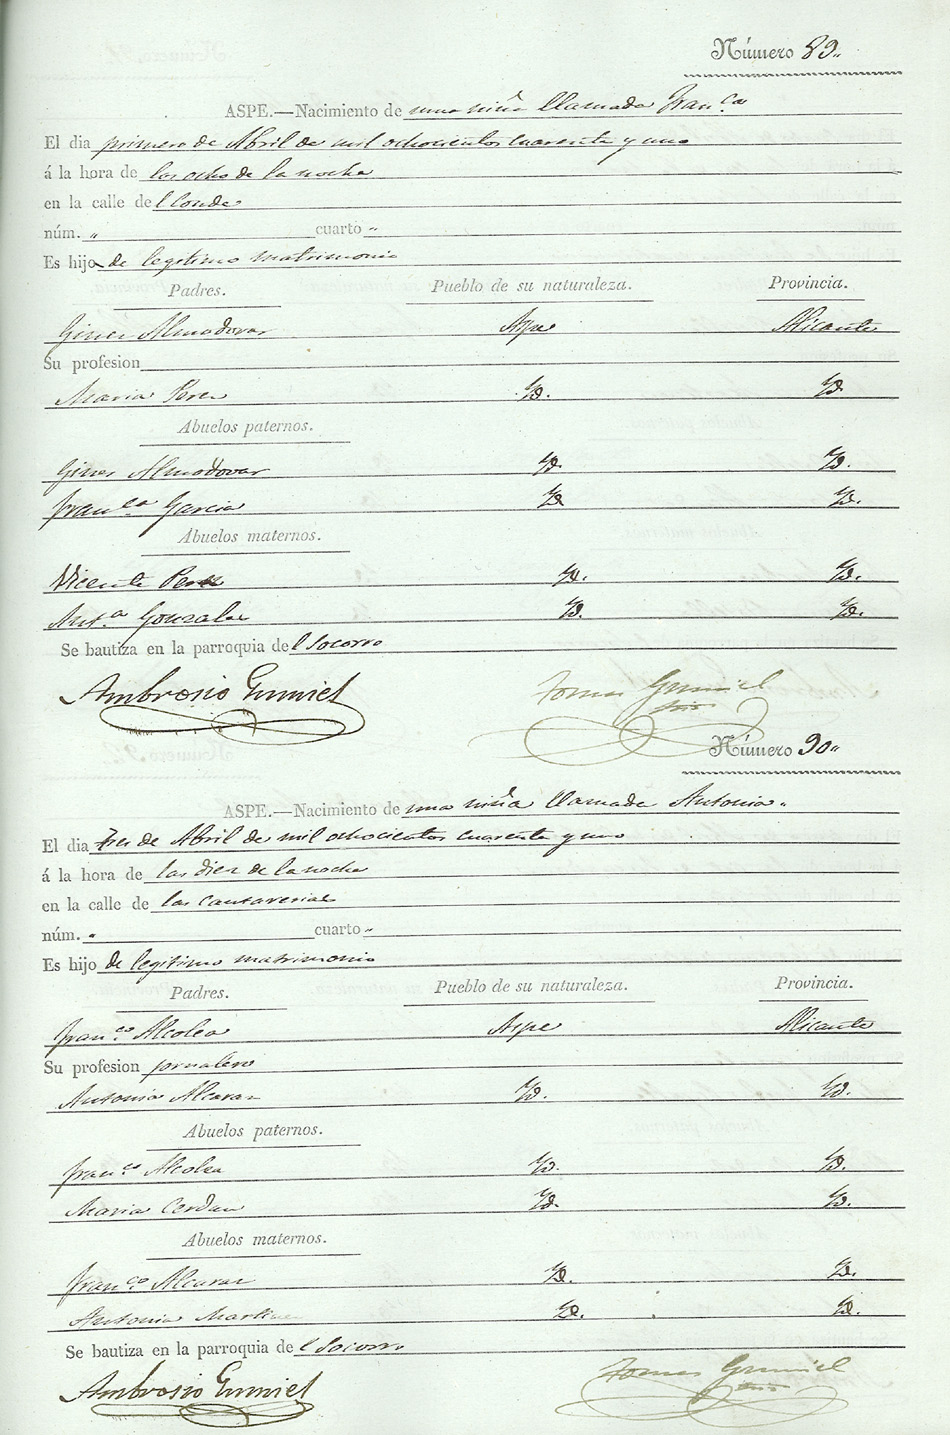 Número 89.,
ASPE.—Nacimiento de una niña llamada Fran.ca
El dia primero de Abril de mil ochocientos cuarenta y uno
á la hora de las ocho de la noche
en la calle del Conde
núm. " cuarto "
Es hija de legitimo matrimonio
Padres. Pueblo de su naturaleza. Provincia.
Gines Almodovar Aspe Alicante
Su profesion
Maria Perez Yd. Yd.
Abuelos paternos.
Gines Almodovar Yd. Yd.
Fran.ca Garcia Yd. Yd.
Abuelos maternos.
Vicente Perez Yd. Yd.
Ant.a Gonzalez Yd. Yd.
Se bautiza en la parroquia del Socorro
Ambrosio Gumiel Tomas Gumiel
Número 90.,
ASPE.—Nacimiento de una niña llamada Antonia.,
El dia tres de Abril de mil ochocientos cuarenta y uno
á la hora de las diez de la noche
en la calle de las Cantarerias
núm. " cuarto "
Es hijo de legitimo matrimonio
Padres. Pueblo de su naturaleza. Provincia.
Fran.co Alcolea Aspe Alicante
Su profesion jornalero
Antonia Alcaraz Yd. Yd.
Abuelos paternos.
Fran.co Alcolea Yd. Yd.
Maria Cerdan Yd. Yd.
Abuelos maternos.
Fran.co Alcaraz Yd. Yd.
Antonia Martinez Yd. Yd.
Se bautiza en la parroquia del Socorro
Ambrosio Gumiel Tomas Gumiel